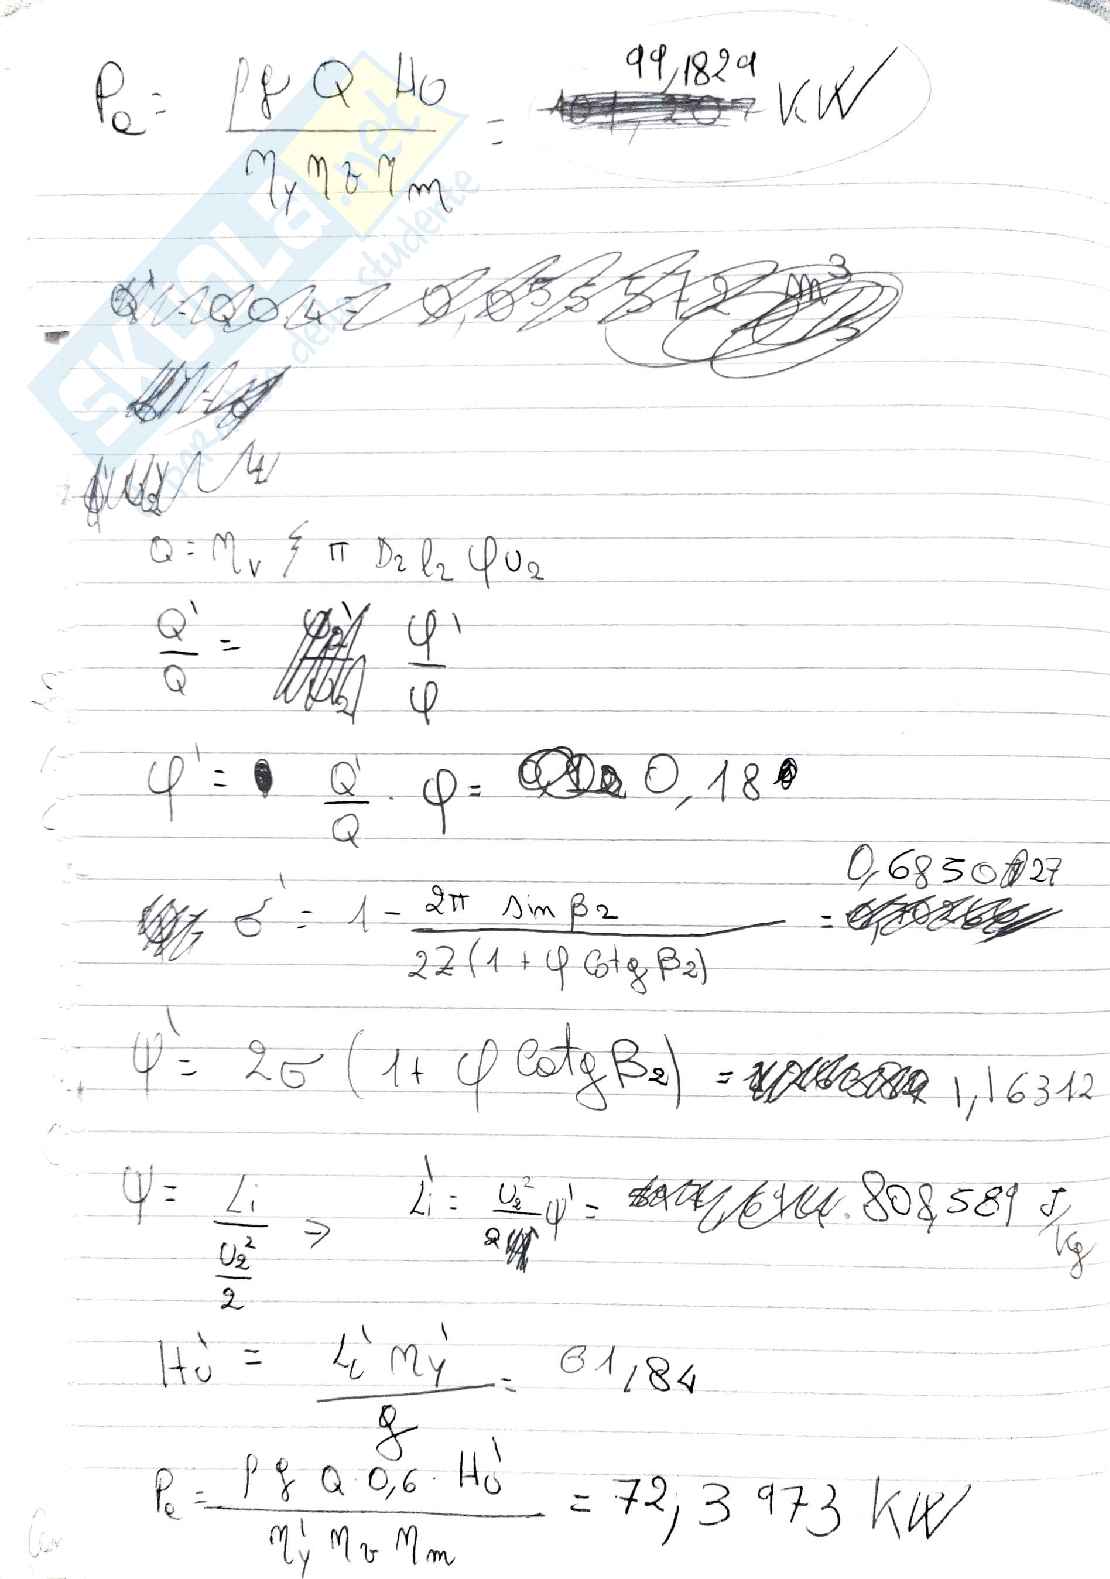 Pe = ρ g Q Hu / (ηy ηv ηm) = 99,1829 KW
Q = ηv ξ π D2 l2 φ U2
Q' / Q = φ' / φ
φ' = Q' / Q · φ = 0,18
σ' = 1 - 2π sin β2 / (2Z (1 + φ cotg β2)) = 0,6850127
ψ' = 2σ (1 + φ cotg β2) = 1,16312
ψ = Li / (U2² / 2) ⇒ Li' = U2² / 2 ψ' = 808,589 J/kg
Hu' = Li' ηy' / g = 61,84
Pe = ρ g Q · 0,6 · Hu' / (ηy' ηv ηm) = 72,3973 KW
SKUOLA.net